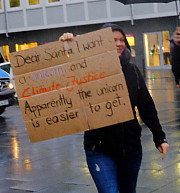 Dear Santa, I want
a unicorn and
Climate Justice
Apparently the unicorn
is easier to get.